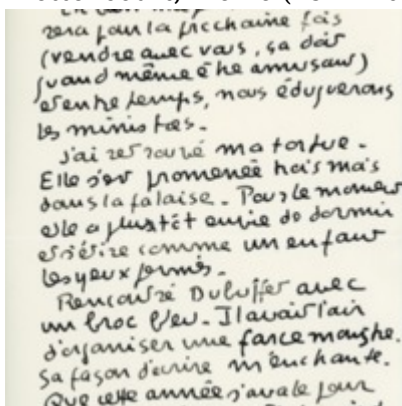 sera pour la prochaine fois
(vendre avec vous, ça doit
quand même être amusant)
et entre temps, nous éduquerons
les ministres.
J'ai retrouvé ma tortue.
Elle s'est promenée trois mois
dans la falaise. Pour le moment
elle a plustôt envie de dormir
et s'étire comme un enfant
les yeux fermés.
Rencontré Dubuffet avec
un broc bleu. Il avait l'air
d'organiser une farce mauche.
Sa façon d'écrire m'enchante.
Que cette année j'avale pour